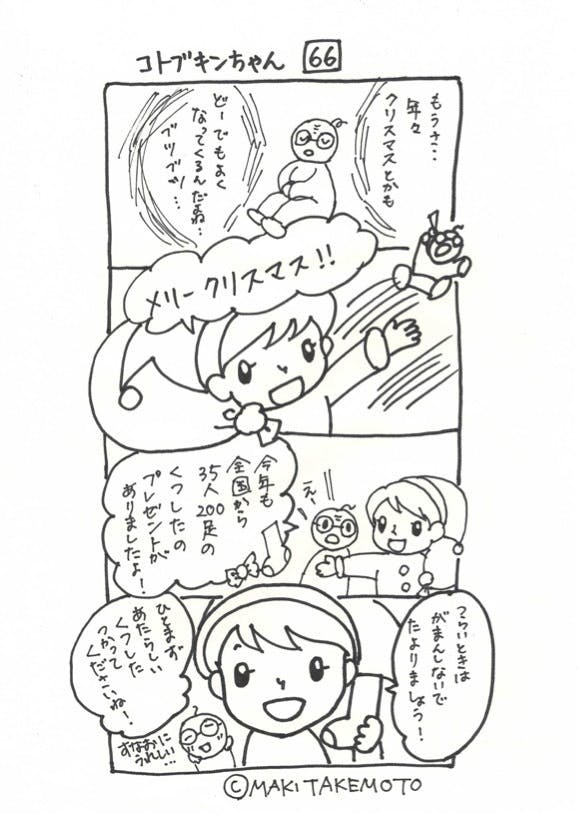 コトブキンちゃん 66
もうさ…
年々
クリスマスとかも
どーでもよく
なってくるんだよね…
ブツブツ…
メリークリスマス!!
今年も
全国から
35人200足の
くつしたの
プレゼントが
ありましたよ!
えっ
つらいときは
がまんしないで
たよりましょう!
ひとまず
あたらしい
くつした
つかって
くださいね!
すなおに
うれしい…
©MAKI TAKEMOTO